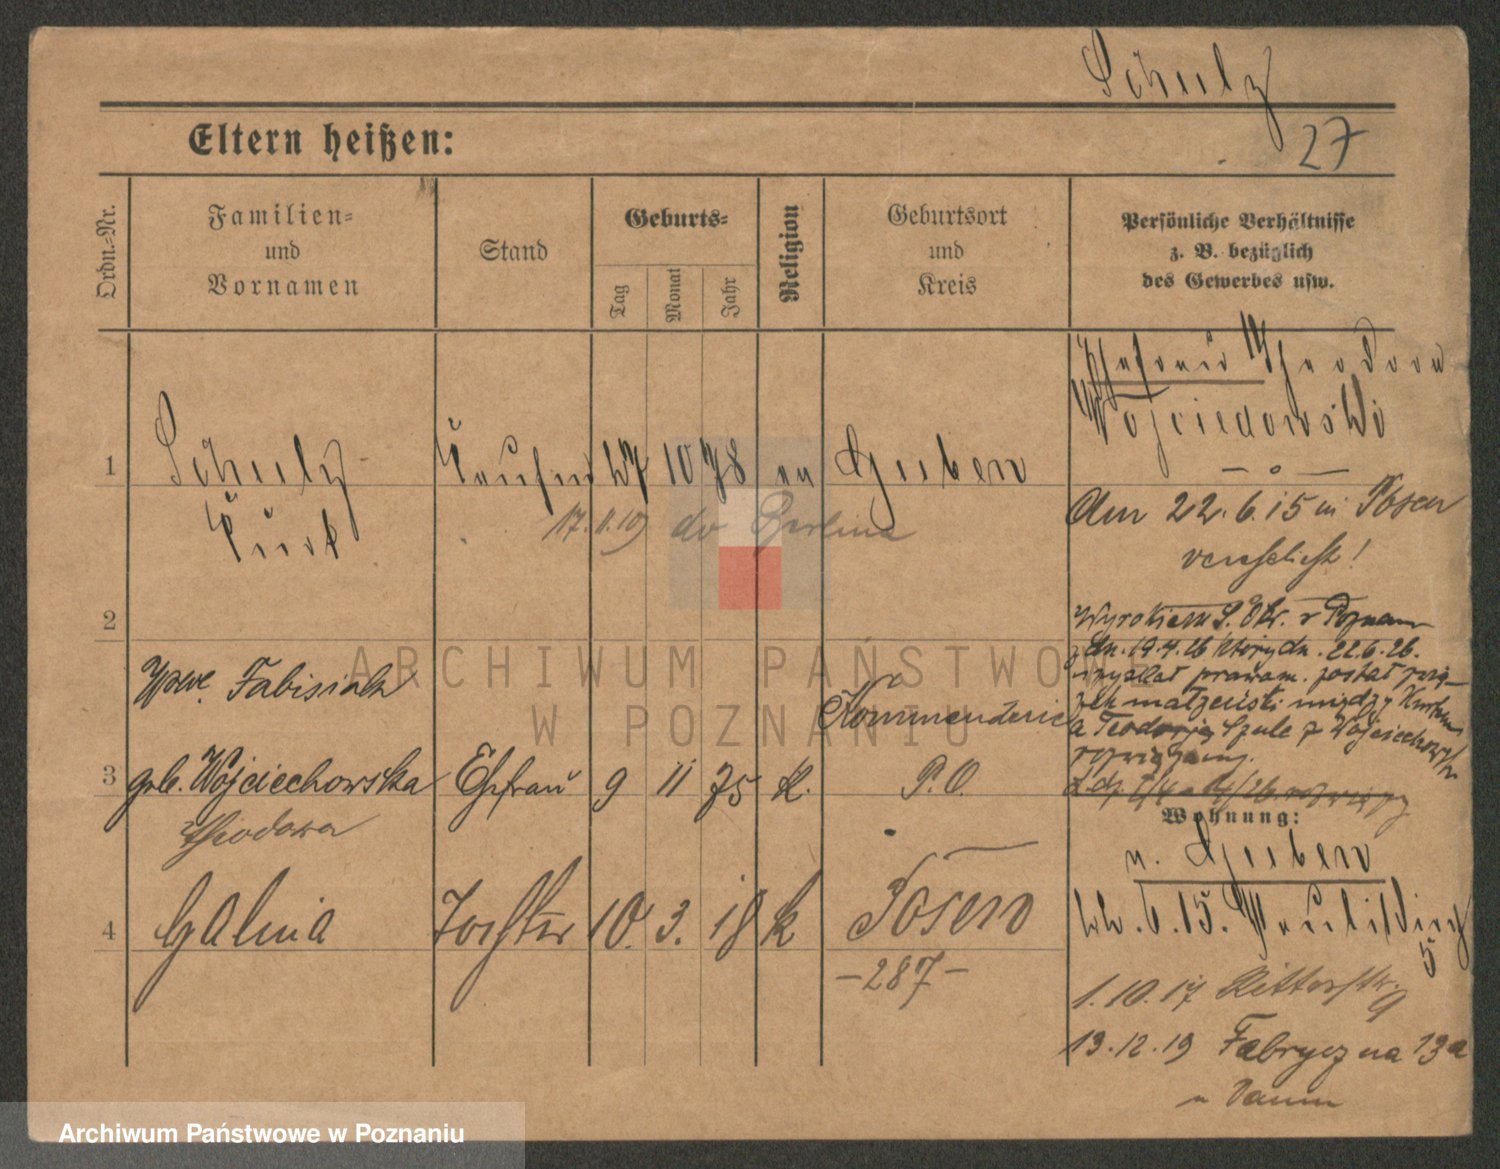 Schulz
27
Eltern heißen:
Ordn.-Nr.
Familien-
und
Vornamen
Stand
Geburts-
Tag
Monat
Jahr
Religion
Geburtsort
und
Kreis
Persönliche Verhältnisse
z. B. bezüglich
des Gewerbes usw.
Ehefrau Theodora
Wojciechowski
1
Schulz
Kurt
Kaufm
27 10 78 ev Guben
17. 11. 19 do Berlina
Am 22.6.15 in Posen
verehelicht!
2
Wyrokiem S. Okr. w Poznaniu
z dn. 19.4.26 który dn. 22.6.26.
uzyskał prawom. został zwią-
zek małżeński między Kurtem
a Teodorją Szulc z Wojciechowskich
rozwiązany.
Fabisiak
Kommenderie
3
geb. Wojciechowska
Theodora
Ehefrau
9 11 75 k.
P. O.
Wohnung:
v. Guben
22.6.15. Paulikirchstr
5
4
Halina
Tochter
10. 3. 18 k
Posen
-287-
1.10.17 Ritterstr. 9
13.12.19 Fabryczna 13a
ARCHIWUM PAŃSTWOWE
W POZNANIU
Archiwum Państwowe w Poznaniu